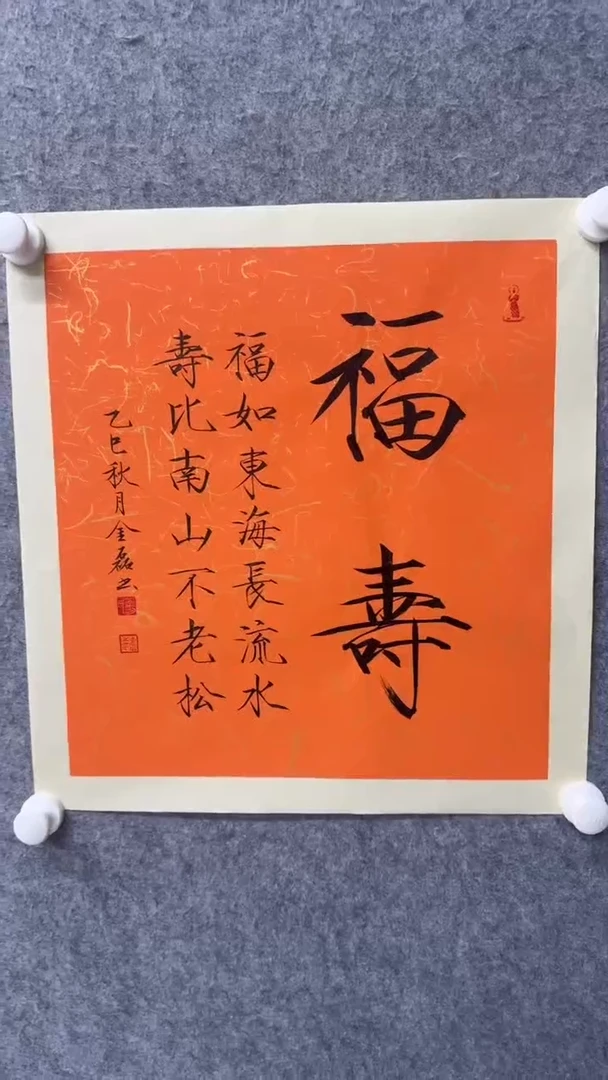 福壽
福如東海長流水
壽比南山不老松
乙巳秋月金磊书